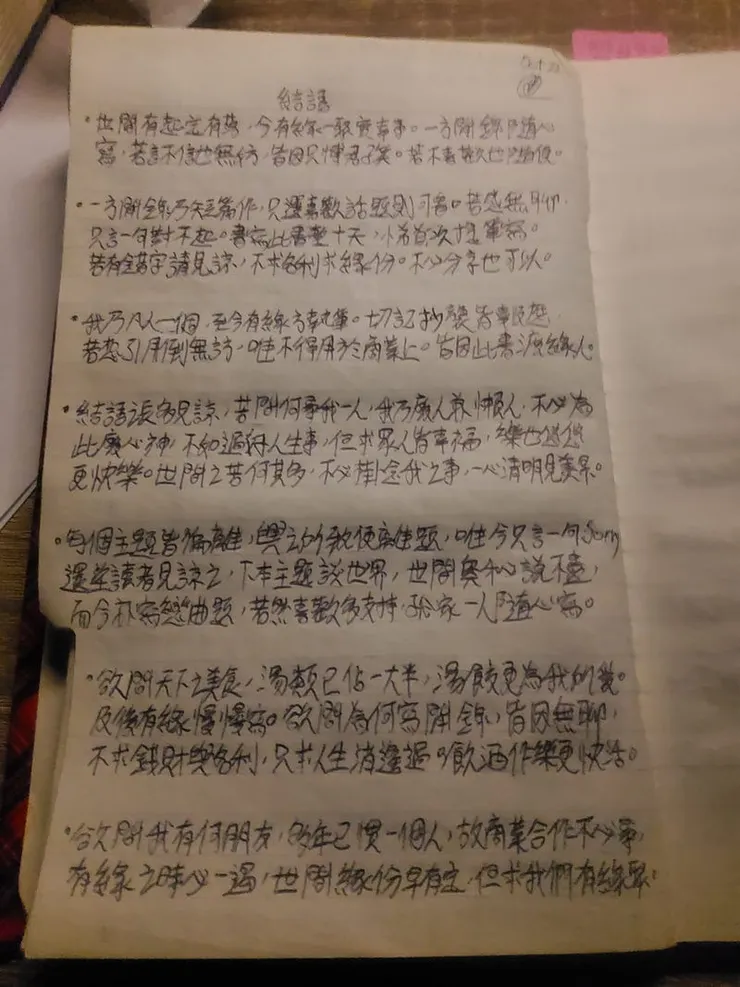 結語
•世間有起定有落,今有緣一聚實幸事。一方開錦隨心
寫,若言不信也無仿,皆因只博君子笑。若不喜歡也隨便。
•一方開錦乃短篇作,只選喜歡話題則可者。若感無聊,
只言一句對不起。書寫此書整十天,小弟首次執筆寫。
若有錯字請見諒,不求名利求緣份。不心分享也可以。
•我乃凡人一個,至今有緣方執筆。切記抄襲皆
若想引用倒無訪,唯不得用於商業上。皆因此書源緣人。
•結語語多見諒,若問何事我一人,我乃廢人兼懶人,不必為
此廢心神,不如過好人生事,但求眾人皆幸福,樂也悠悠
更快樂。世間之苦何其多,不必掛念我之事,一心清明見美景。
•每個主題皆偏離,興之所致便離題,唯今只言一句Sorry
還望讀者見諒之,下本主題談世界,世間奧秘說不盡,
而今朴寫戀曲題,若然喜歡多支持,獨家一人隨心寫。
欲問天下之美食,湯類已佔一大半,湯餃更為我所後。
及後有緣慢慢寫。欲問為何寫開錦,皆因無聊,
不求錢財與名利,只求人生逍遙過。飲酒作樂更快活。
•欲問我有何朋友,多年已慣一個人,故商業合作不必尋,
有緣之時必一遇,世間緣份早有定,但求我們有緣聚。